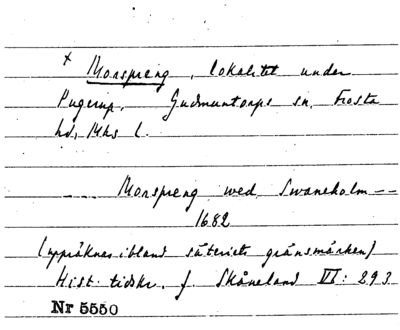 x Morspreng, lokalitet under
Pugerup, Gudmuntorps sn, Frosta
hd, Mhs l.
Morspreng wed Swaneholm --
1682
(uppräknas ibland säteriets gränsmärken)
Hist. tidskr. f. Skåneland VI: 293
Nr 5550